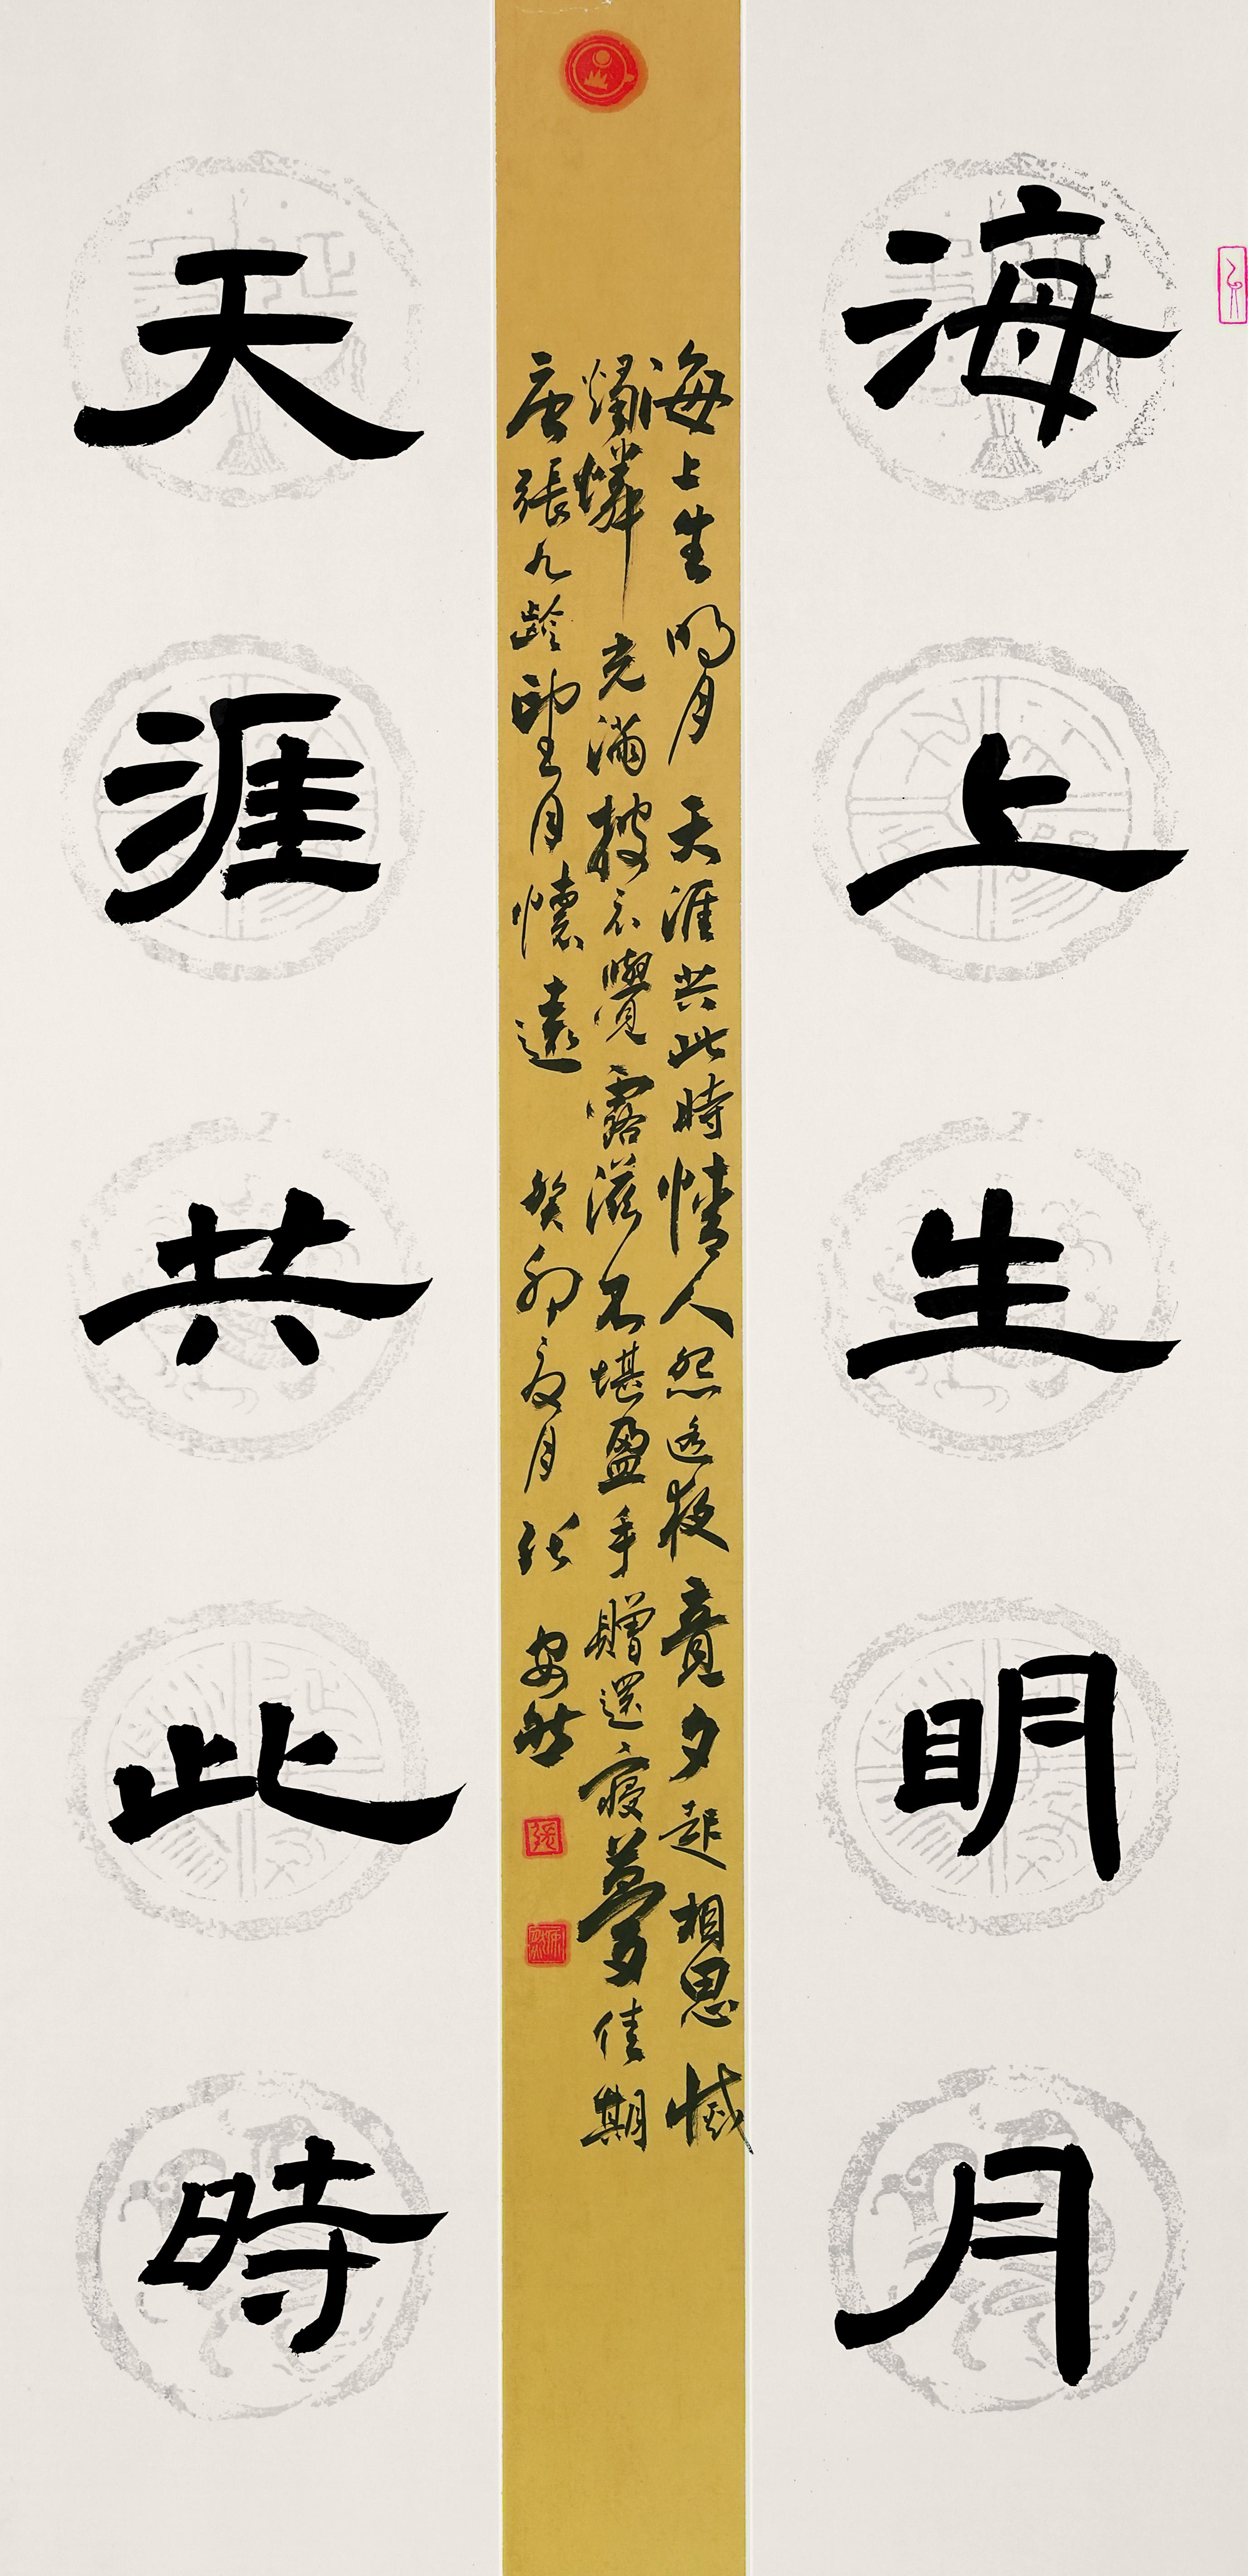 海上生明月
海上生明月天涯共此時情人怨遙夜竟夕起相思滅
燭憐光滿披衣覺露滋不堪盈手贈還寢夢佳期
唐張九齡望月懷遠癸卯夏月張安然
張
天涯共此時